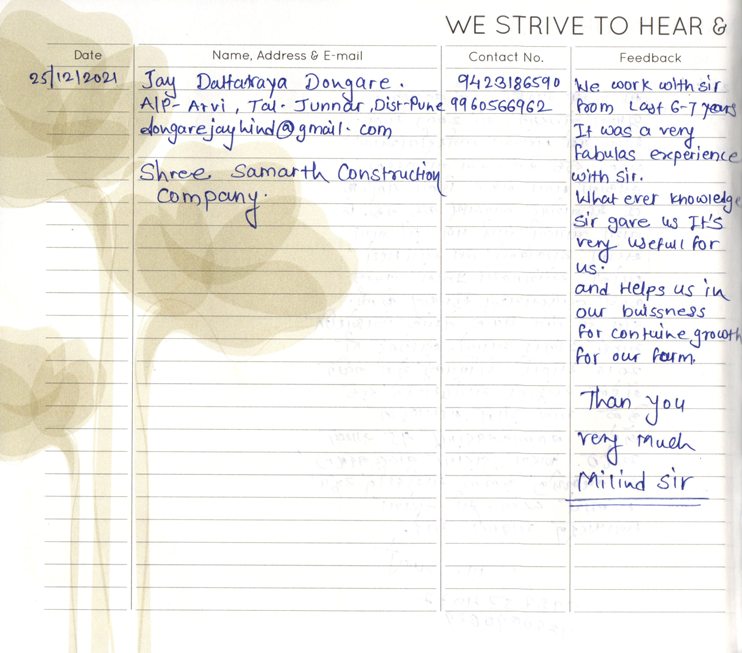 WE STRIVE TO HEAR &
Date Name, Address & E-mail Contact No. Feedback
25/12/2021 Jay Dattatraya Dongare. 9423186590 We work with sir
A/P- Arvi, Tal. Junnar, Dist-Pune 9960566962 from Last 6-7 years
dongarejayhind@gmail.com It was a very
fabulas experience
Shree Samarth Construction with sir.
Company. What ever knowledge
sir gave us It's
very usefull for
us.
and Helps us in
our buissness
for contuine growth
for our farm.
Than you
very much
Milind sir